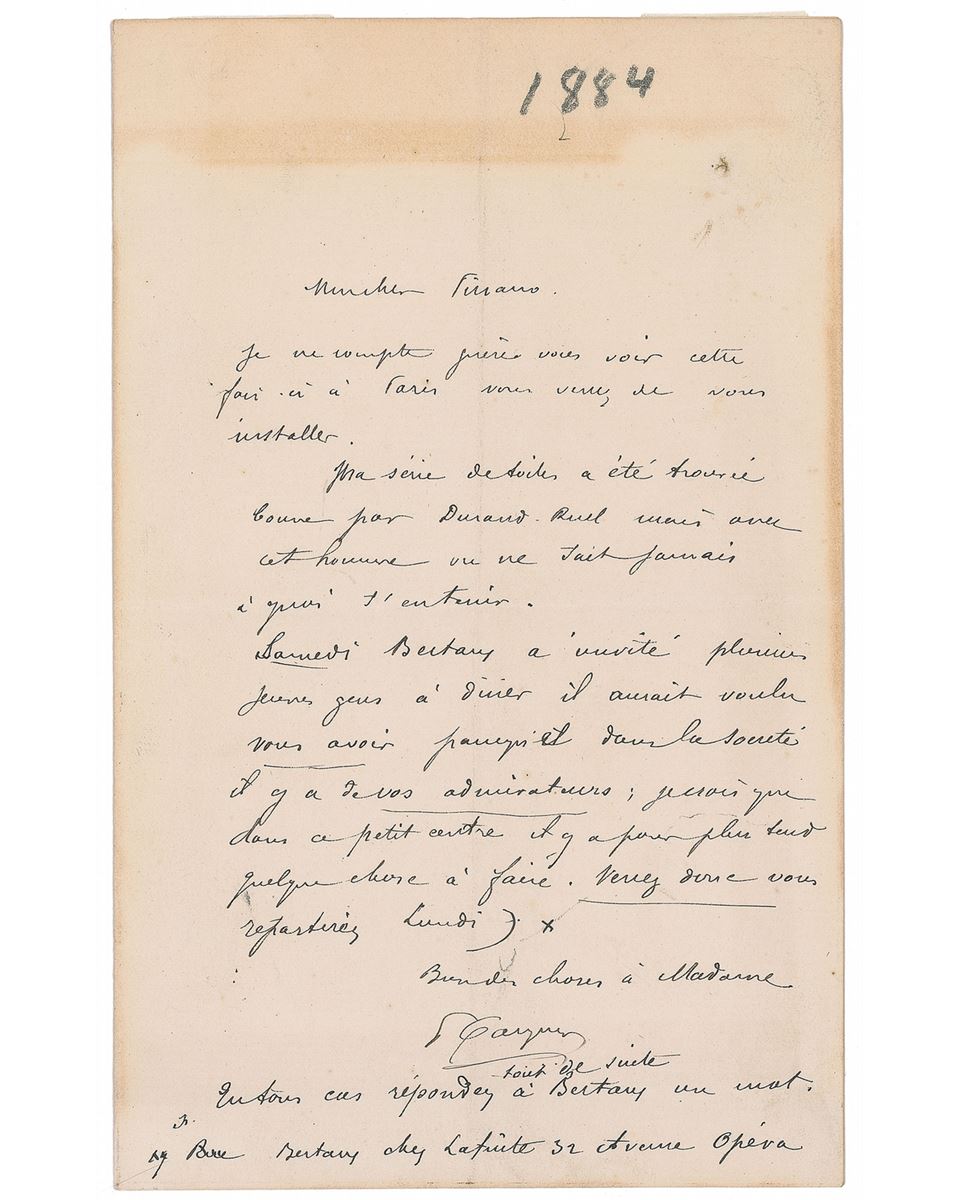 1884
Mon cher Pissarro.
Je ne compte guère vous voir cette
fois-ci à Paris vous venez de vous
installer.
Ma série de toiles a été trouvée
bonne par Durand-Ruel mais avec
cet homme on ne sait jamais
à quoi s'en tenir.
Samedi Bertaux a invité plusieurs
jeunes gens à diner il aurait voulu
vous avoir parcequ'il dans la société
il y a de vos admirateurs ; je crois que
dans ce petit centre il y a pour plus tard
quelque chose à faire. Venez donc vous
repartirez Lundi) x
Bien des choses à Madame
P Gauguin
tout de suite
En tous cas répondez à Bertaux un mot.
Bertaux chez Lafuite 32 Avenue Opéra